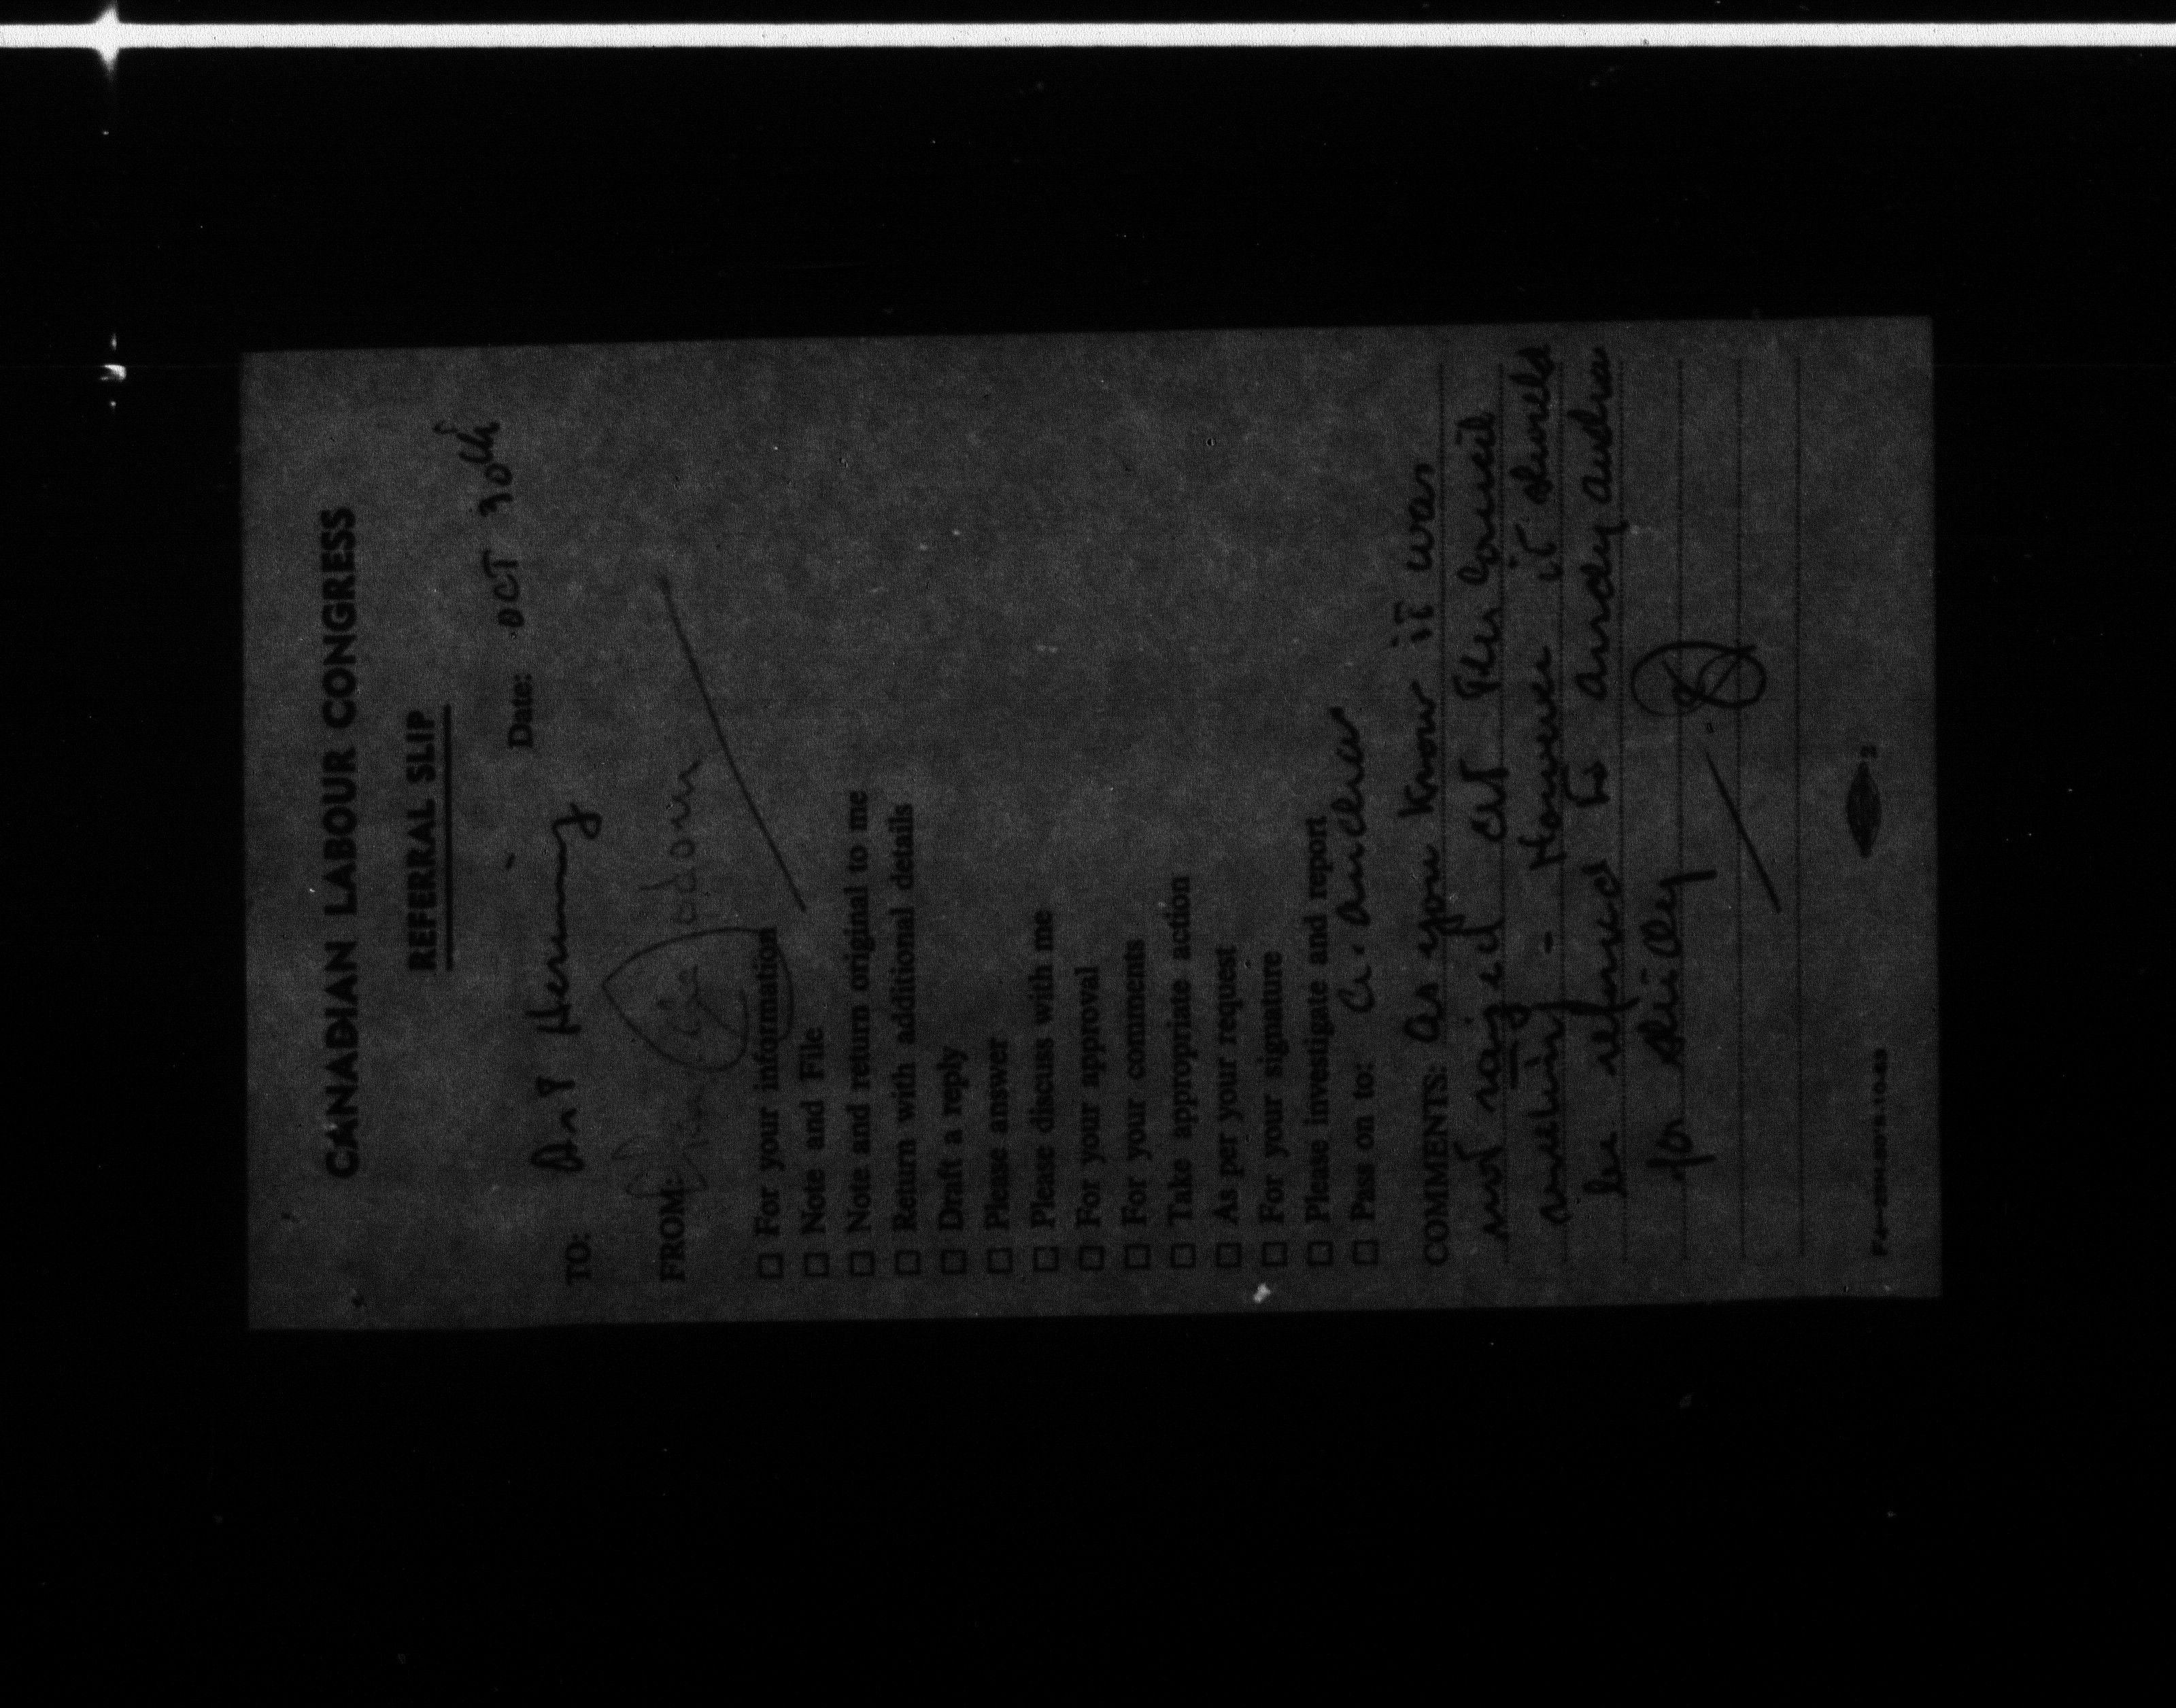 CANADIAN LABOUR CONGRESS
REFERRAL SLIP
Date: OCT 30th
TO: Art Hemming
FROM:
☐ For your information
☐ Note and File
☐ Note and return original to me
☐ Return with additional details
☐ Draft a reply
☐ Please answer
☐ Please discuss with me
☐ For your approval
☐ For your comments
☐ Take appropriate action
☐ As per your request
☐ For your signature
☐ Please investigate and report
☐ Pass on to: A. Andras
COMMENTS: As you know it was
not raised at the Council
meeting - However it should
be referred to Andy Andras
for
2